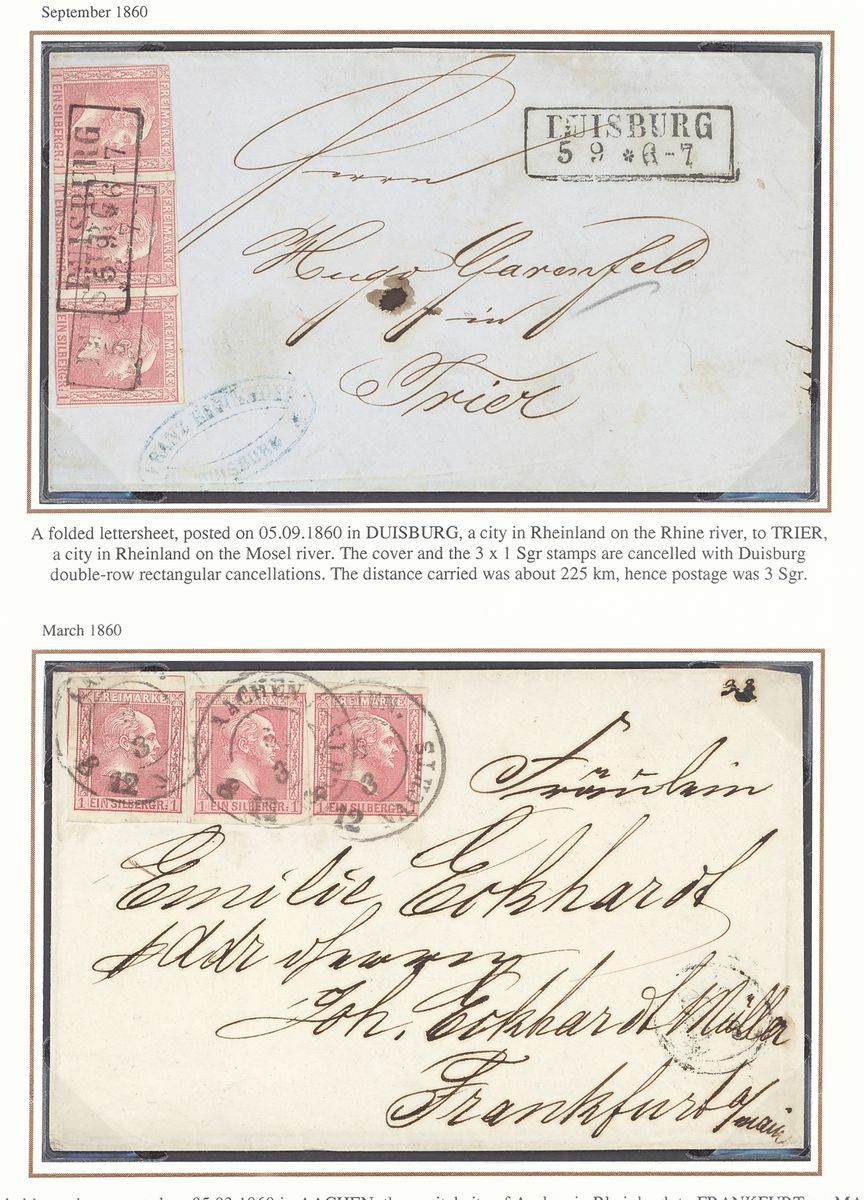 September 1860
1 EIN SILBERGR. 1
FREIMARKE
EIN SILBERGR.
FREIMARKE
EIN SILBERGR. 1
FREIMARKE
DUISBURG
DUISBURG
5 9 * 6-7
Herrn
Hugo Garenfeld
in
Trier
FRANZ
DUISBURG
A folded lettersheet, posted on 05.09.1860 in DUISBURG, a city in Rheinland on the Rhine river, to TRIER,
a city in Rheinland on the Mosel river. The cover and the 3 x 1 Sgr stamps are cancelled with Duisburg
double-row rectangular cancellations. The distance carried was about 225 km, hence postage was 3 Sgr.
March 1860
FREIMARKE
1 EIN SILBERGR. 1
FREIMARKE
1 EIN SILBERGR. 1
FREIMARKE
1 EIN SILBERGR. 1
AACHEN
3
12
3
3
12
Fräulein
Emilie Eckhardt
p Adr Herrn
Joh. Eckhardt Müller
Frankfurt a/main